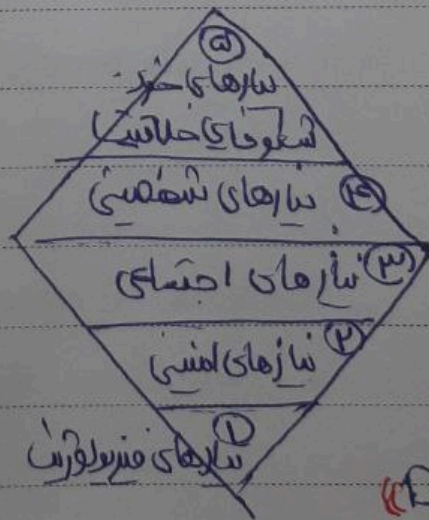 ⑤
نیازهای خود
شکوفای خلاقیت
نیازهای شخصیتی ④
نیازهای اجتماعی ③
نیازهای امنیتی ②
①
نیازهای فیزیولوژیک